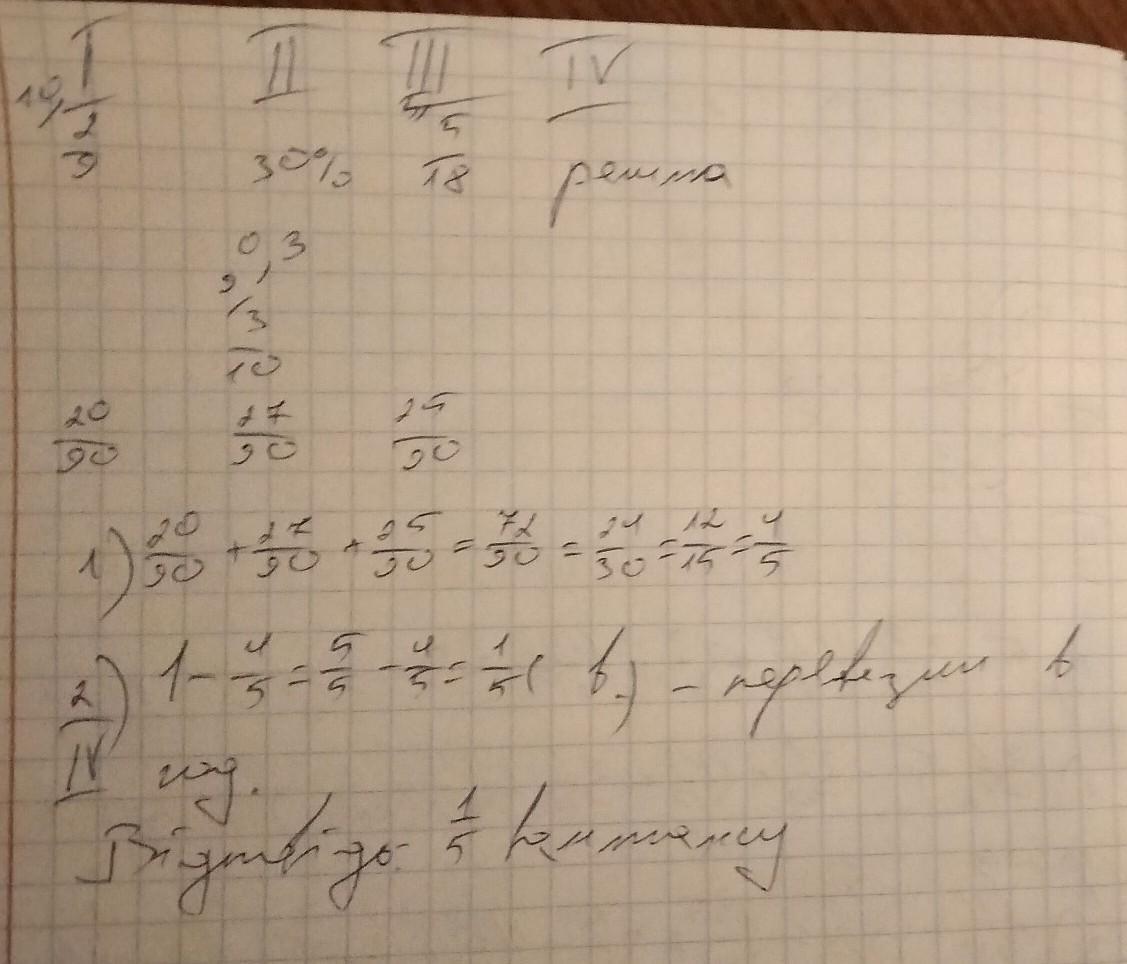 I II III IV
2/9 30% 5/18 решта
0,3
3/10
20/90 27/90 25/90
1) 20/90 + 27/90 + 25/90 = 72/90 = 24/30 = 12/15 = 4/5
2) 1 - 4/5 = 5/5 - 4/5 = 1/5 ( в.) - перевезли в
IV год.
Відповідь: 1/5 вантажу